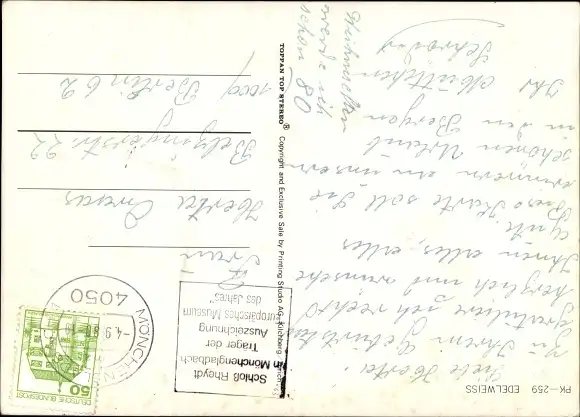 PK—259 EDELWEISS
Liebe Herta!
Zu Ihrem Geburtstag
gratuliere ich recht
herzlich und wünsche
Ihnen alles, alles
Gute.
Diese Karte soll Sie
erinnern an unsern
schönen Urlaub
in den Bergen
Ihr
Schrödes
Weihnachten
werde ich
schon 80
TOPPAN TOP STEREO ® Copyright and Exclusive Sale by Printing Studio AG, Kilchberg
Schloß Rheydt
in Mönchengladbach
Träger der
Auszeichnung
"Europäisches Museum
des Jahres"
4050
MÖNCHEN
-4.9.80
50
DEUTSCHE BUNDESPOST
Frau
Herta
Belzigerstr. 22
1000 Berlin 62